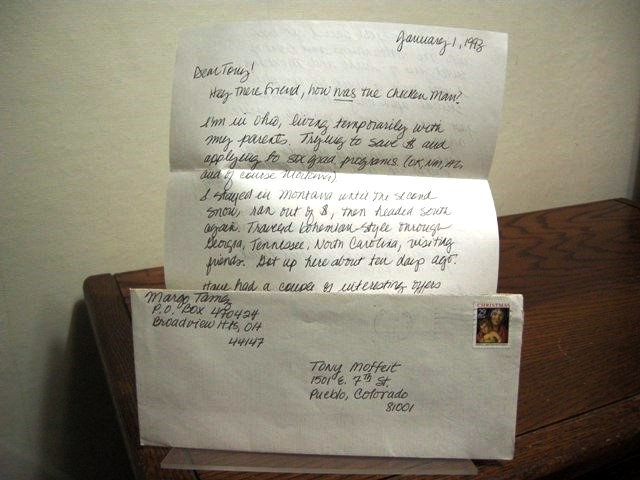 January 1, 1993
Dear Tony!
Hey there Friend, how was the Chicken Man?
I'm in Ohio, living temporarily with
my parents. Trying to save $ and
applying to six grad programs (OR, NM, AZ,
and of course Montana)
I stayed in Montana until the second
snow, ran out of $, then headed south
again. Traveled bohemian style through
Georgia, Tennessee, North Carolina, visiting
friends. Got up here about ten days ago.
Have had a couple of interesting offers
Margo Tamez
P.O. Box 470424
Broadview Hts, OH
44147
CHRISTMAS
29
Tony Moffeit
1501 E. 7th St.
Pueblo, Colorado
81001